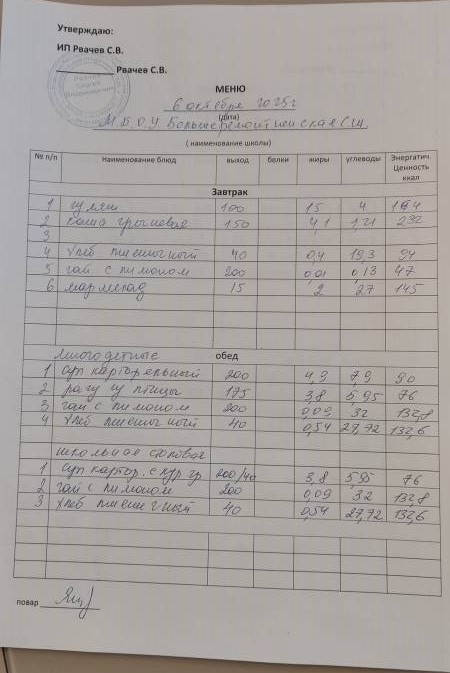 Утверждаю:
ИП Рвачев С.В.
Рвачев С.В.
МЕНЮ
6 октября 2025г
(дата)
М Б О У Большеремонтненская СШ
( наименование школы)
№ п/п Наименование блюд выход белки жиры углеводы Энергатич. Ценность ккал
Завтрак
1 гуляш 100 15 4 164
2 каша гречневая 150 4,1 232
3
4 хлеб пшеничный 40 0,4 19,3 94
5 чай с лимоном 200 0,01 0,13 47
6 мармелад 15 2 27 145
многодетные обед
1 суп картофельный 200 4,9 7,9 90
2 рагу из птицы 175 3,8 5,95 76
3 чай с лимоном 200 0,09 32 132,8
4 хлеб пшеничный 40 0,54 27,72 132,6
школьная столовая
1 суп картоф. с кур 200/40 3,8 5,95 76
2 чай с лимоном 200 0,09 32 132,8
3 хлеб пшеничный 40 0,54 27,72 132,6
повар